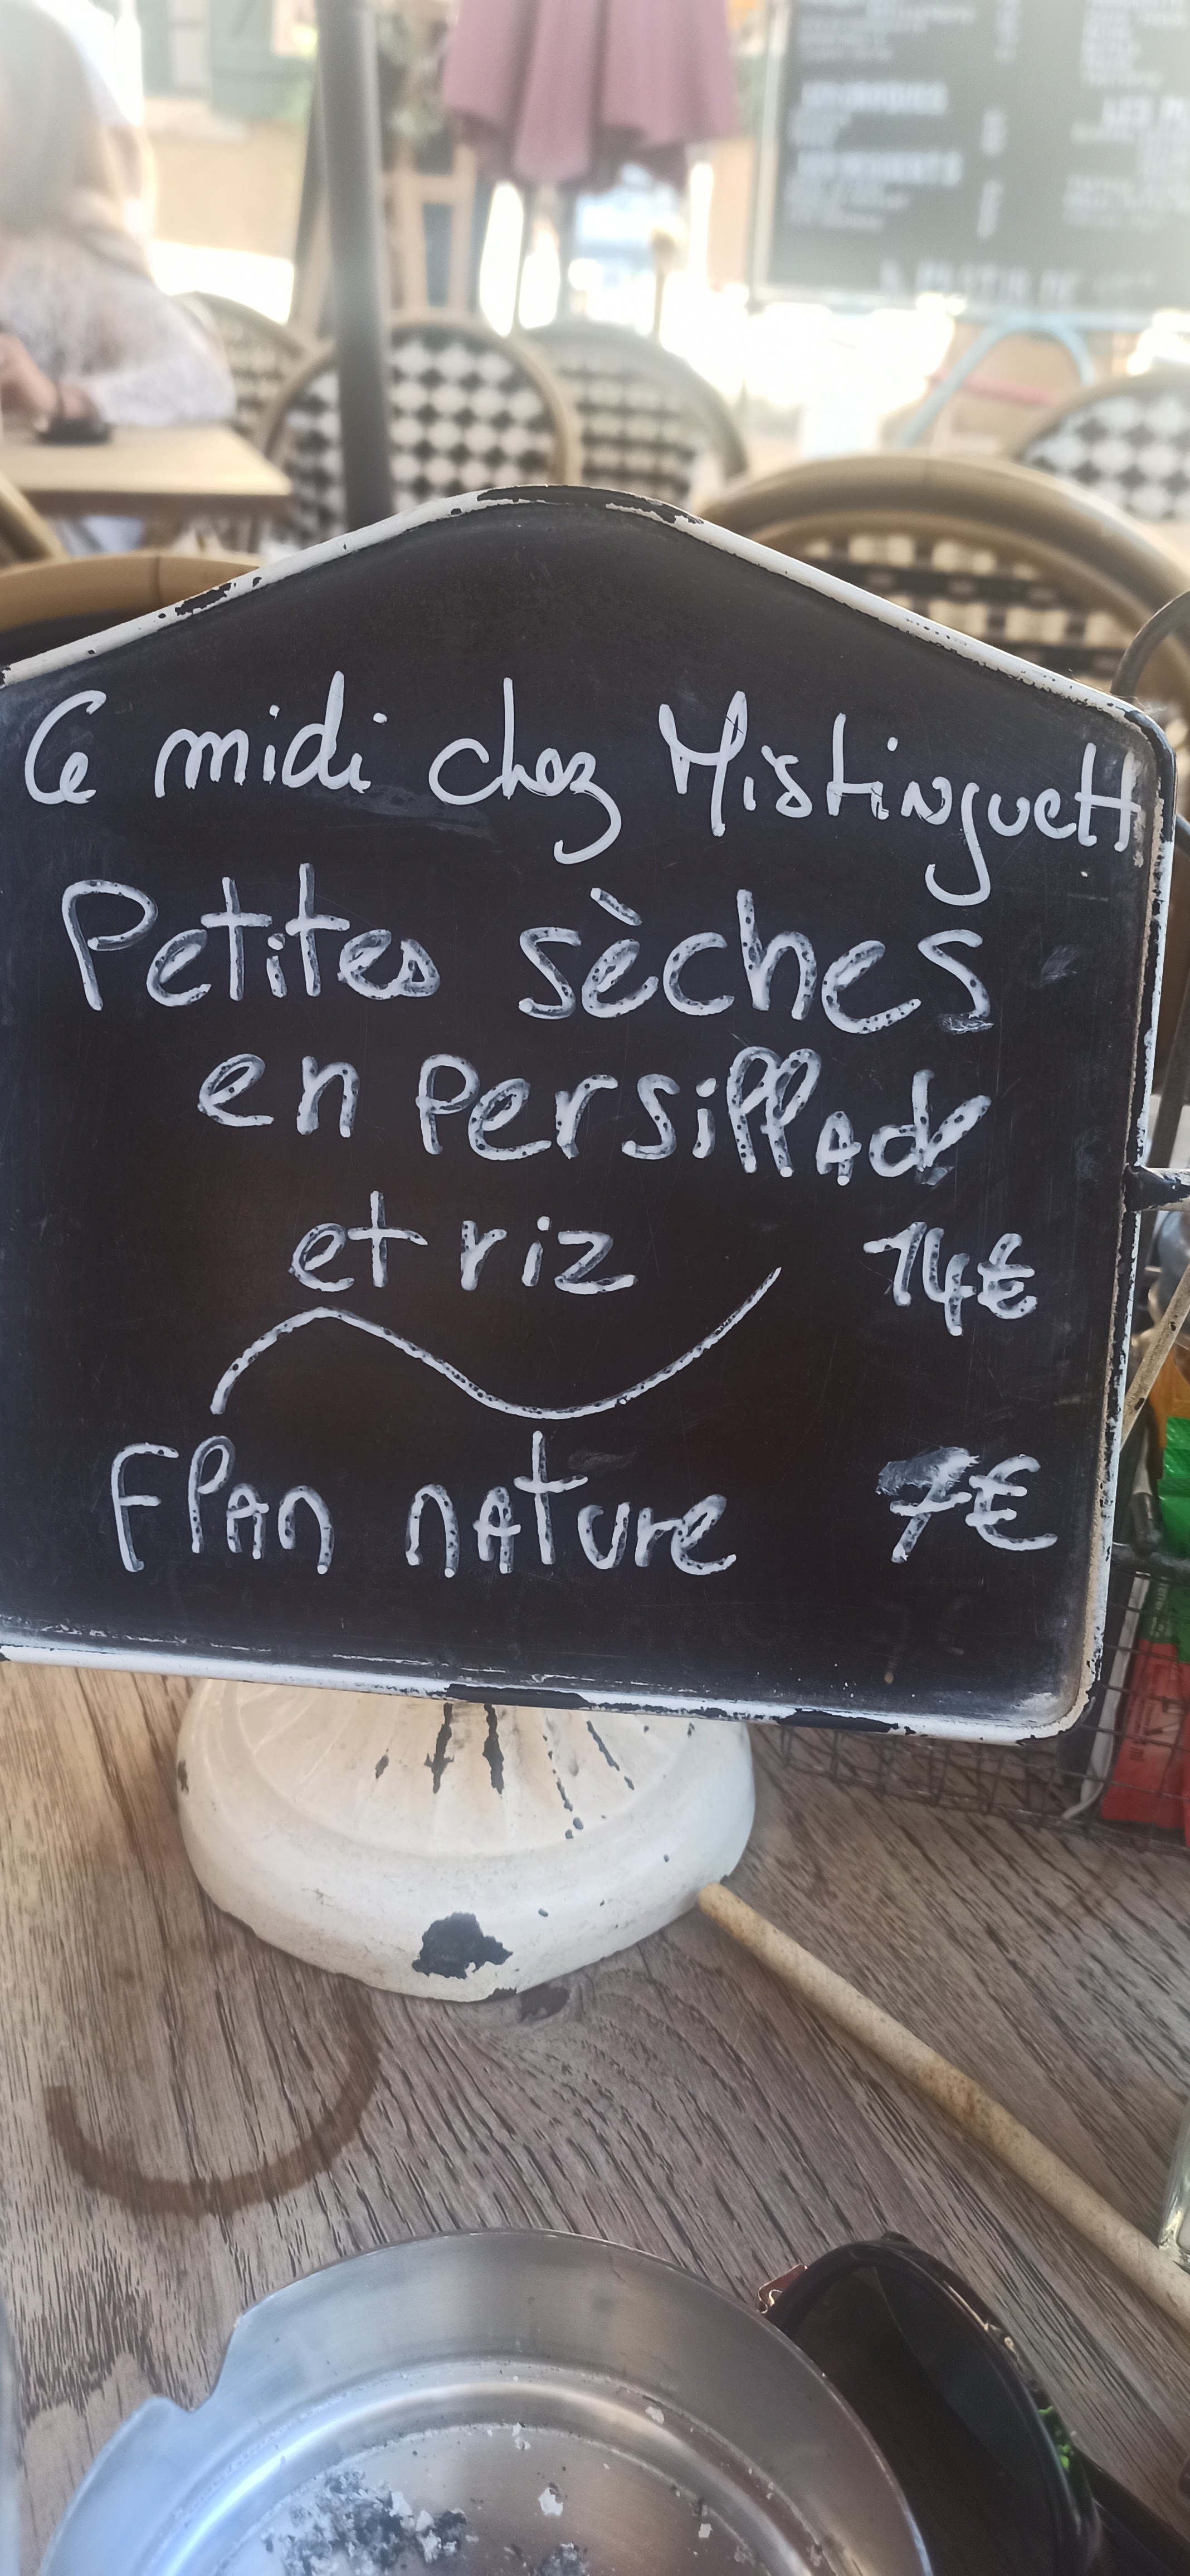 Ce midi chez Mistinguett
Petites sèches
en persillade
et riz 14€
Flan nature 7€